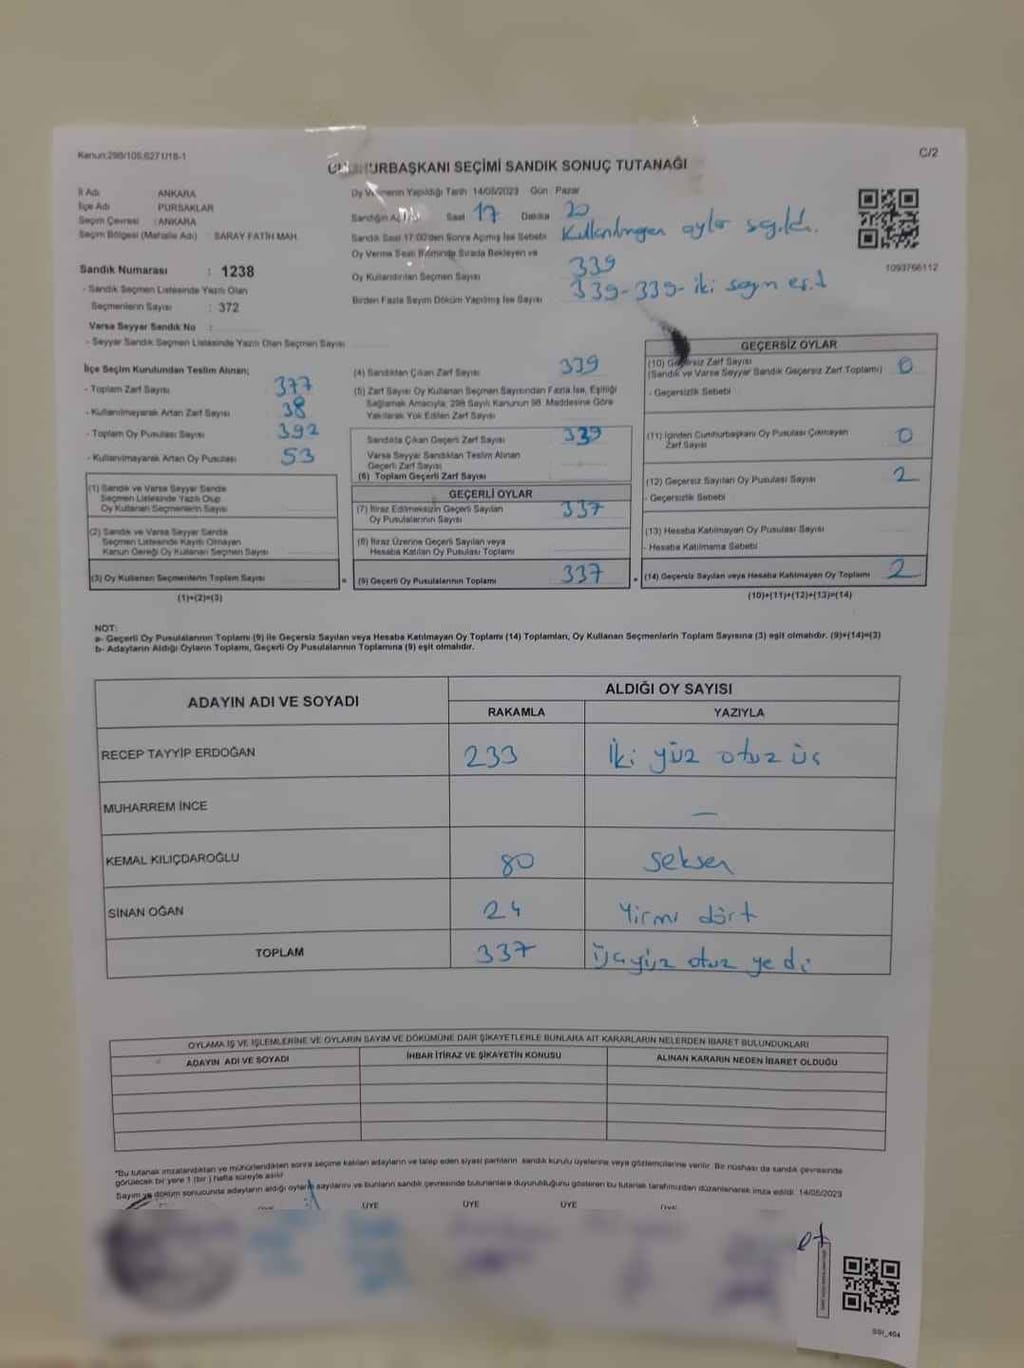 Kanun:298/105,6271/18-1
C/2
CUMHURBAŞKANI SEÇİMİ SANDIK SONUÇ TUTANAĞI
İl Adı ANKARA
İlçe Adı PURSAKLAR
Seçim Çevresi :ANKARA
Seçim Bölgesi (Mahalle Adı) SARAY FATİH MAH.
Oy Verilmenin Yapıldığı Tarih 14/05/2023 Gün Pazar
Sandığın Saat 17 Dakika 20
Sandık Saat 17:00'den Sonra Açılmış İse Sebebi Kullanılmayan oylar sayıldı.
Oy Verme Saati Bitiminde Sırada Bekleyen ve
Oy Kullandırılan Seçmen Sayısı 339
Birden Fazla Sayım Döküm Yapılmış İse Sayısı 339-339- iki sayım eşit
1093766112
Sandık Numarası : 1238
- Sandık Seçmen Listesinde Yazılı Olan
Seçmenlerin Sayısı : 372
Varsa Seyyar Sandık No :
- Seyyar Sandık Seçmen Listesinde Yazılı Olan Seçmen Sayısı
İlçe Seçim Kurulundan Teslim Alınan;
- Toplam Zarf Sayısı 377
- Kullanılmayarak Artan Zarf Sayısı 38
- Toplam Oy Pusulası Sayısı 392
- Kullanılmayarak Artan Oy Pusulası 53
(1) Sandık ve Varsa Seyyar Sandık
Seçmen Listesinde Yazılı Olup
Oy Kullanan Seçmenlerin Sayısı
(2) Sandık ve Varsa Seyyar Sandık
Seçmen Listesinde Kaydı Olmayan
Kanun Gereği Oy Kullanan Seçmen Sayısı
(3) Oy Kullanan Seçmenlerin Toplam Sayısı
(1)+(2)=(3)
(4) Sandıktan Çıkan Zarf Sayısı 339
(5) Zarf Sayısı Oy Kullanan Seçmen Sayısından Fazla İse, Eşitliği
Sağlamak Amacıyla, 298 Sayılı Kanunun 98. Maddesine Göre
Yakılarak Yok Edilen Zarf Sayısı
Sandıkta Çıkan Geçerli Zarf Sayısı 339
Varsa Seyyar Sandıktan Teslim Alınan
Geçerli Zarf Sayısı
(6) Toplam Geçerli Zarf Sayısı
GEÇERLİ OYLAR
(7) İtiraz Edilmeksizin Geçerli Sayılan
Oy Pusulalarının Sayısı 337
(8) İtiraz Üzerine Geçerli Sayılan veya
Hesaba Katılan Oy Pusulası Toplamı
= (9) Geçerli Oy Pusulalarının Toplamı 337
GEÇERSİZ OYLAR
(10) Geçersiz Zarf Sayısı
(Sandık ve Varsa Seyyar Sandık Geçersiz Zarf Toplamı) 0
- Geçersizlik Sebebi
(11) İçinden Cumhurbaşkanı Oy Pusulası Çıkmayan
Zarf Sayısı 0
(12) Geçersiz Sayılan Oy Pusulası Sayısı 2
- Geçersizlik Sebebi
(13) Hesaba Katılmayan Oy Pusulası Sayısı
- Hesaba Katılmama Sebebi
+ (14) Geçersiz Sayılan veya Hesaba Katılmayan Oy Toplamı 2
(10)+(11)+(12)+(13)=(14)
NOT:
a- Geçerli Oy Pusulalarının Toplamı (9) ile Geçersiz Sayılan veya Hesaba Katılmayan Oy Toplamı (14) Toplamları, Oy Kullanan Seçmenlerin Toplam Sayısına (3) eşit olmalıdır. (9)+(14)=(3)
b- Adayların Aldığı Oyların Toplamı, Geçerli Oy Pusulalarının Toplamına (9) eşit olmalıdır.
ADAYIN ADI VE SOYADI ALDIĞI OY SAYISI
RAKAMLA YAZIYLA
RECEP TAYYİP ERDOĞAN 233 İki yüz otuz üç
MUHARREM İNCE —
KEMAL KILIÇDAROĞLU 80 seksen
SİNAN OĞAN 24 Yirmi dört
TOPLAM 337 Üçyüz otuz yedi
OYLAMA İŞ VE İŞLEMLERİNE VE OYLARIN SAYIM VE DÖKÜMÜNE DAİR ŞİKAYETLERLE BUNLARA AİT KARARLARIN NELERDEN İBARET BULUNDUKLARI
ADAYIN ADI VE SOYADI İHBAR İTİRAZ VE ŞİKAYETİN KONUSU ALINAN KARARIN NEDEN İBARET OLDUĞU
*Bu tutanak imzalandıktan ve mühürlendikten sonra seçime katılan adayların ve talep eden siyasi partilerin sandık kurulu üyelerine veya gözlemcilerine verilir. Bir nüshası da sandık çevresinde
görülecek bir yere 1 (bir ) hafta süreyle asılır.
Sayım ve döküm sonucunda adayların aldığı oyların sayılarını ve bunların sandık çevresinde bulunanlara duyurulduğunu gösteren bu tutanak tarafımızdan düzenlenerek imza edildi. 14/05/2023
ÜYE ÜYE ÜYE ÜYE ÜYE
SSI_404